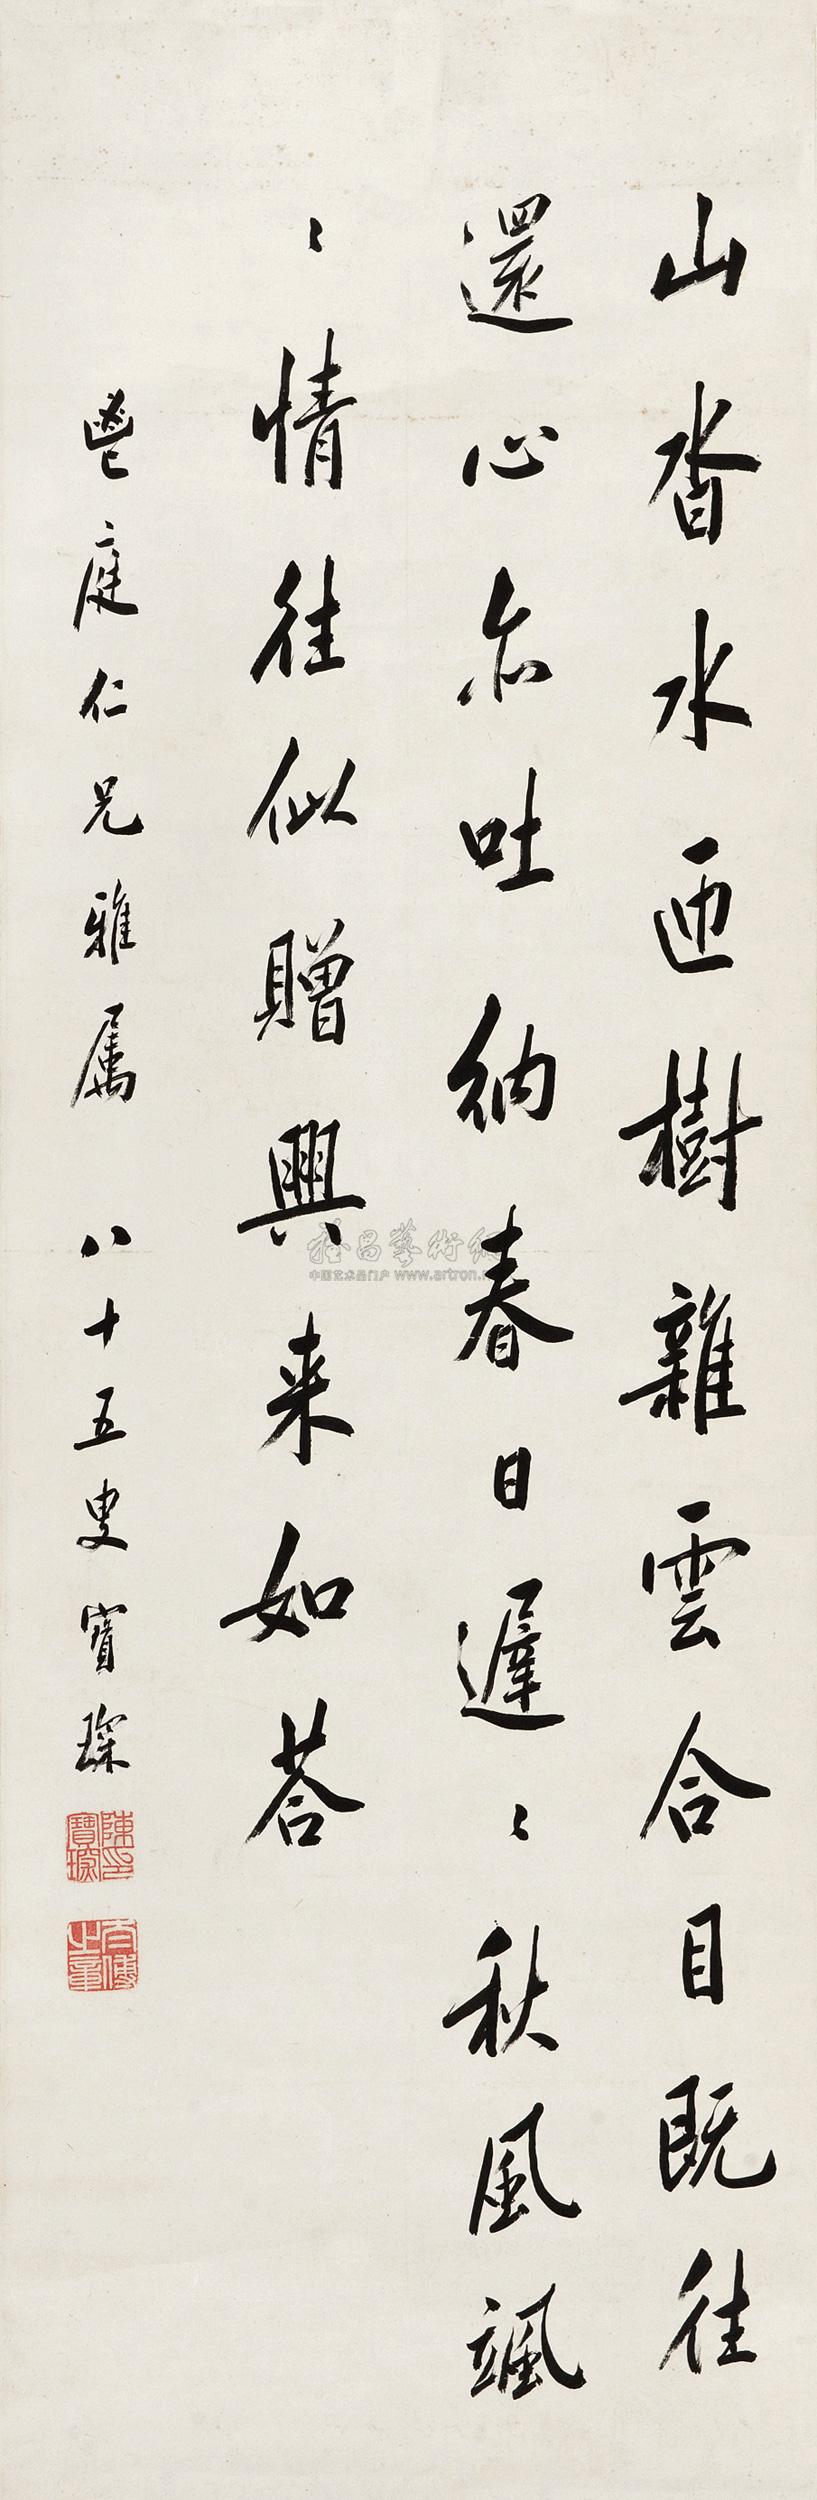 山沓水匝樹雜雲合目既往
還心亦吐納春日遲〻秋風颯
〻情往似贈興来如荅
鬯庭仁兄雅屬 八十五叟寶琛
陳寶琛印
太傅之章
雅昌藝術網
中国艺术品门户 www.artron.n